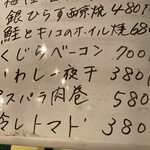 銀ひらす西京焼 480円
鮭とキノコのホイル焼 680
くじらベーコン 700円
いわし一夜干 380円
スパラ肉巻 580
冷しトマト 380